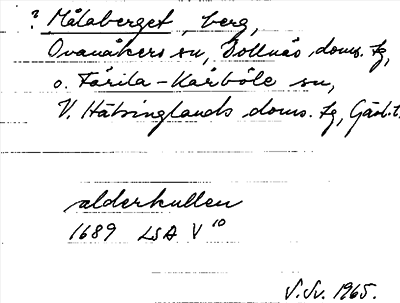 ? Målaberget, berg,
Ovanåkers sn, Bollnäs doms. tg,
o. Färila-Kårböle sn,
V. Hälsinglands doms. tg, Gävl. l.
alderkullen
1689 LSA V 10
S. Sv. 1965.